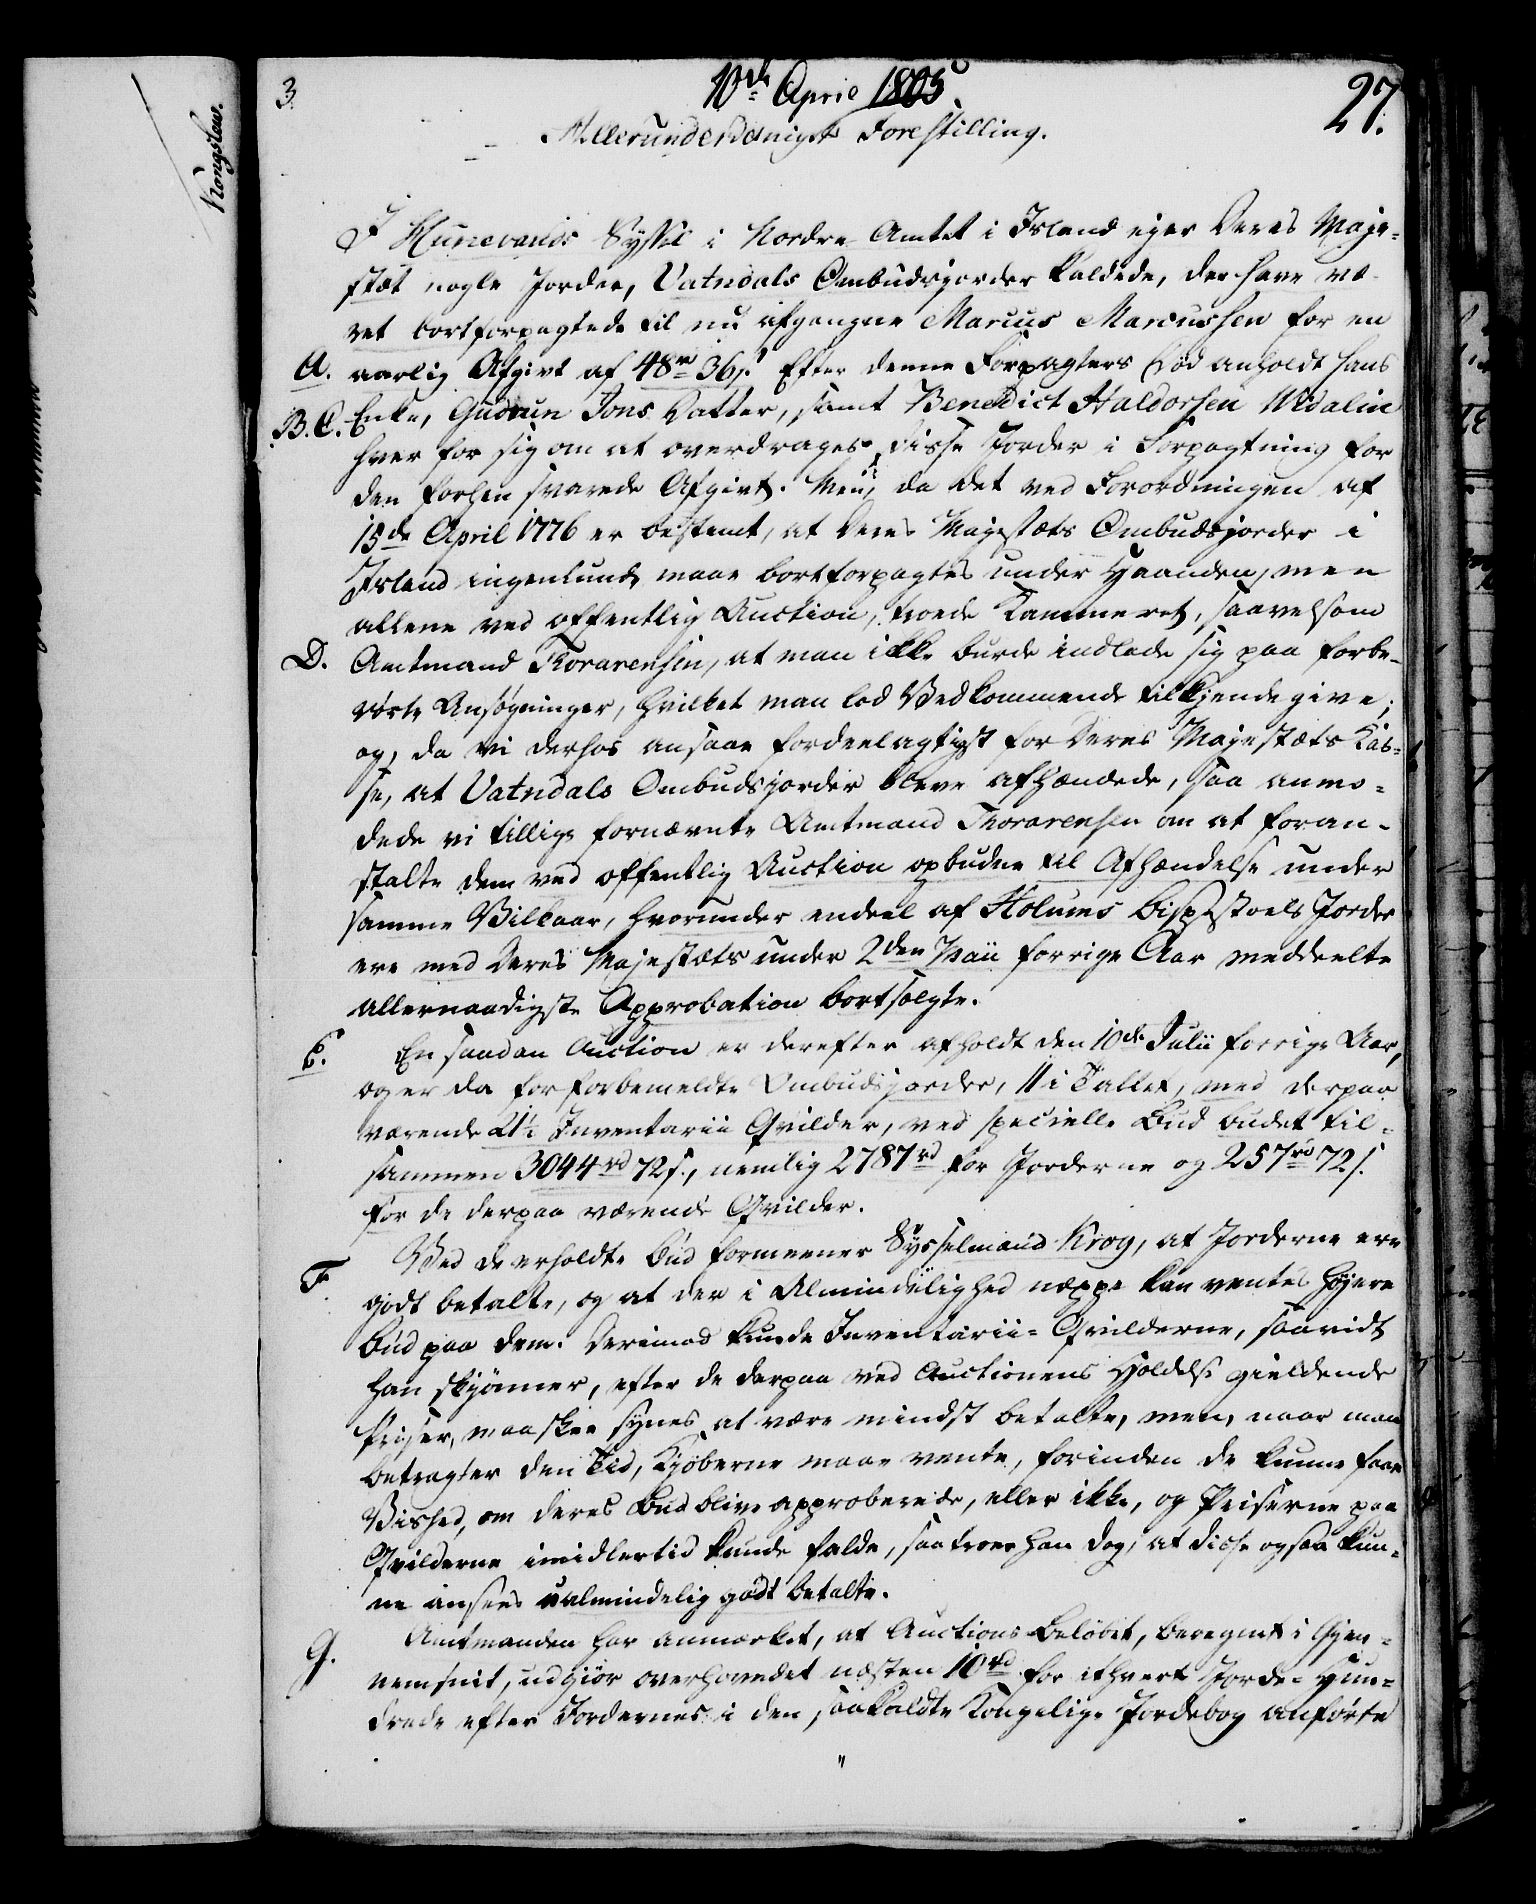 Kongslew.
3.
10de April 1805.
27.
Allerunderdanigst Forestilling.
I Hunevands Syssel i Nordre Amtet i Island ejer Deres Maje-
stæt nogle Jorder, Vatndals Ombudsjorder kaldede, der have væ-
ret bortforpagtede til nu afgangne Marcus Marcussen for en
A. aarlig Afgivt af 48 rd 36 s. Efter denne Forpagters Død anholdt hans
B. C. Enke, Gudrun Jons Datter, samt Benedict Haldorsen Widalin
hver for sig om at overdrages disse Jorder i Forpagtning for
den forhen svarede Afgivt. Men, da det ved Forordningen af
15de April 1776 er bestemt, at Deres Majestæts Ombudsjorder i
Island ingenlunde maae bortforpagtes under Haanden, men
allene ved offentlig Auction, troede Kammeret, saavelsom
D. Amtmand Thorarensen, at man ikke burde indlade sig paa forbe-
rørte Ansøgninger, hvilket man lod Vedkommende tilkjendegive;
og, da vi derhos ansaae fordeelagtigst for Deres Majestæts Kas-
se, at Vatndals Ombudsjorder bleve afhændede, saa anmo-
dede vi tillige fornævnte Amtmand Thorarensen om at foran-
stalte dem ved offentlig Auction opbudne til Afhændelse under
samme Vilkaar, hvorunder endeel af Holums Bispestoels Jorder
ere med Deres Majestæts under 2den Maii forrige Aar meddeelte
allernaadigste Approbation bortsolgte.
E. En saadan Auction er derefter afholdt den 10de Julii forrige Aar,
og er da for forbemeldte Ombudsjorder, 11 i Tallet, med derpaa
værende 21½ Inventarii Qvilder, ved specielle Bud budet til-
sammen 3044 rd 72 s., nemlig 2787 rd for Jorderne og 257 rd 72 s.
for de derpaa værende Qvilder.
F. Ved de erholdte Bud formeener Sysselmand Krog, at Jorderne ere
godt betalte, og at der i Almindelighed neppe kan ventes høiere
Bud paa dem. Derimod kunde Inventarii-Qvilderne, saavidt
han skjønner, efter de derpaa ved Auctionens Holdelse gieldende
Priser, maaskee synes at være mindst betalte, men, naar man
betragter den Tid, Kjøberne maae vente, forinden de kunne faae
Vished, om deres Bud blive approberede, eller ikke, og Priserne paa
Qvilderne imidlertid kunde falde, saa troer han dog, at disse ogsaa kun-
ne ansees ualmindelig godt betalte.
G. Amtmanden har anmærket, at Auctions Beløbet, beregnet i Gjen-
nemsnit, udgiør overhovedet næsten 10 rd for ethvert Jorde-Hun-
drede efter Jordernes i den saakaldte Kongelige Jordebog anførte
"